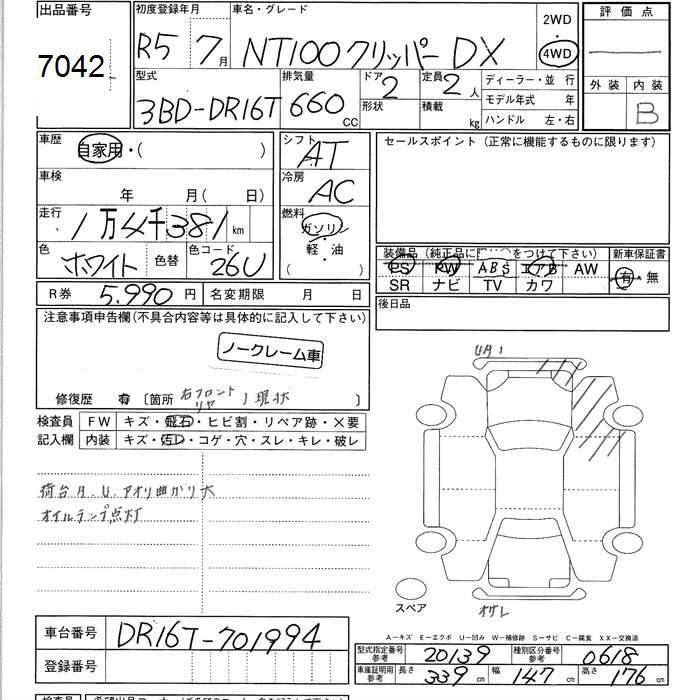 出品番号
7042
初度登録年月
R5 7月
車名・グレード
NT100クリッパー DX
2WD
・
4WD
評価点
外装 内装
B
型式
3BD-DR16T
排気量
660 CC
ドア
2
形状
定員
2人
積載
kg
ディーラー・並 行
モデル年式 年
ハンドル 左・右
車歴
自家用・( )
車検
年 月( 日)
走行
1万4千381km
色
ホワイト
色替
色コード
26U
シフト
AT
冷房
AC
燃料
ガソリン
軽・油
( )
セールスポイント(正常に機能するものに限ります)
装備品(純正品に をつけて下さい)
新車保証書
PS PW ABS エアB AW
有・無
SR ナビ TV カワ
R券 5.990円 名変期限 月 日
後日品
注意事項申告欄(不具合内容等は具体的に記入して下さい)
ノークレーム車
修復歴 有 〔箇所 右フロント 現状
リヤ
検査員
記入欄
FW キズ・飛石・ヒビ割・リペア跡・×要
内装 キズ・汚レ・コゲ・穴・スレ・キレ・破レ
荷台A.U.アオリ曲がり大
オイルランプ点灯
UA1
スペア
オサレ
A—キズ E—エクボ U—凹み W—補修跡 S—サビ C—腐食 XX—交換済
車台番号 DR16T-701994
登録番号
型式指定番号
参考
20139
種別区分番号
参考
0618
車庫証明用
参考
長さ 339cm 幅 147cm 高さ 176cm